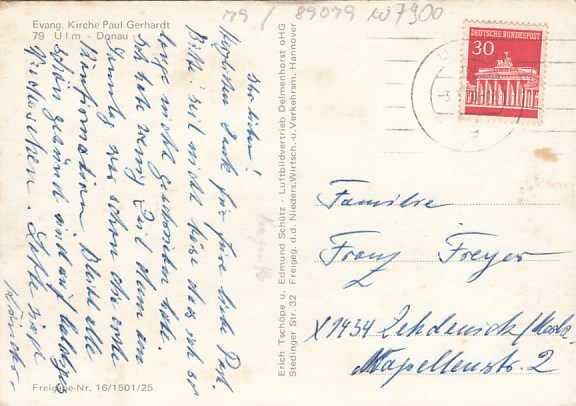 Evang. Kirche Paul Gerhardt
79 Ulm - Donau
M9 / 89079 W7900
DEUTSCHE BUNDESPOST
30
Ihr Lieben!
Herzlichen Dank für Ihre liebe Post.
Bitte seit nicht böse dass ich so
lange nicht geschrieben habe.
Ich habe wenig Zeit denn am
Sonntag war schon die erste
Konfirmation. Bleibt alle
schön gesund und auf baldiges
Wiedersehen.
Erich Tschöpe u. Edmund Schütz · Luftbildvertrieb Delmenhorst oHG
Stedinger Str. 32 Freigeg. d.d. Nieders. Wirtsch.- u. Verkehrsm. Hannover
Familie
Franz Freyer
X1434 Zehdenick/
Kapellenstr. 2
Freigabe-Nr. 16/1501/25